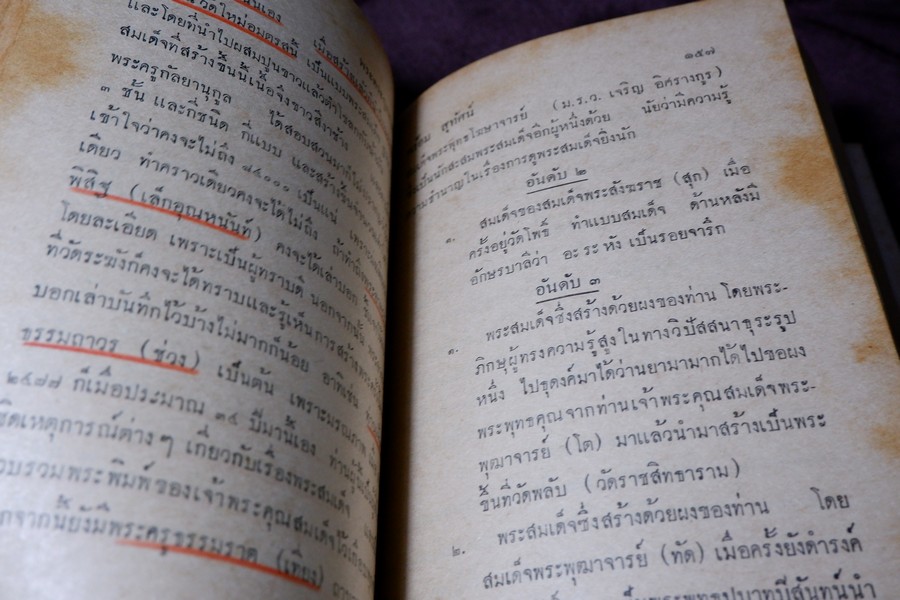 วัดใหม่อมตรส
และโดยที่นำไปผสมปูนขาวแล้วตำ
สมเด็จที่สร้างขึ้นนี้เนื้อจึงขาวสีงาช้าง
พระครูกัลยานุกูล ได้สอบสวนมาก็ไม่
๓ ชั้น และกี่ชนิด กี่แบบ และสร้าง
เข้าใจว่าคงจะไม่ถึง ๘๔๐๐๐ เป็นแน่
เดียว ทำคราวเดียวคงจะได้ไม่ถึง ถ้าทำ
พิสิฐ (เล็กอุณหนันท์) คงจะได้เล่าบอก
โดยละเอียด เพราะเป็นผู้ทราบดี นอกจากนั้น
ที่วัดระฆังก็คงจะได้ทราบและรู้เห็นการสร้าง
บอกเล่าบันทึกไว้บ้างไม่มากก็น้อย อาทิเช่น
ธรรมถาวร (ช่วง) เป็นต้น เพราะมรณภาพ
๒๔๗๗ ก็เมื่อประมาณ ๓๔ ปีมานี้เอง ท่านผู้นี้
ชิดเหตุการณ์ต่างๆ เกี่ยวกับเรื่องพระสมเด็จ
รวบรวมพระพิมพ์ของเจ้าพระคุณสมเด็จไว้
กจากนี้ยังมีพระครูธรรมราต (เที่ยง)
๑๕๗
สุจทัศน์
พระพุทธโฆษาจารย์ (ม.ร.ว. เจริญ อิศรางกูร)
เป็นนักสะสมพระสมเด็จอีกผู้หนึ่งด้วย นับว่ามีความรู้
ชำนาญในเรื่องการดูพระสมเด็จยิ่งนัก
อันดับ ๒
๑. สมเด็จของสมเด็จพระสังฆราช (สุก) เมื่อ
ครั้งอยู่วัดโพธิ์ ทำแบบสมเด็จ ด้านหลังมี
อักษรบาลีว่า อะ ระ หัง เป็นรอยจาริก
อันดับ ๓
๑. พระสมเด็จซึ่งสร้างด้วยผงของท่าน โดยพระ-
ภิกษุผู้ทรงความรู้สูงในทางวิปัสสนาธุระรูป
หนึ่ง ไปธุดงค์มาได้ว่านยามามากได้ไปขอผง
พระพุทธคุณจากท่านเจ้าพระคุณสมเด็จพระ-
พุฒาจารย์ (โต) มาแล้วนำมาสร้างเป็นพระ
ขึ้นที่วัดพลับ (วัดราชสิทธาราม)
๒. พระสมเด็จซึ่งสร้างด้วยผงของท่าน โดย
สมเด็จพระพุฒาจารย์ (ทัด) เมื่อครั้งยังดำรงค์